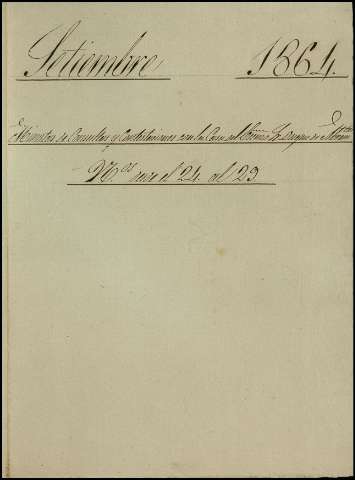 Setiembre 1864.
Minutas de Consultas y Contestaciones con la Casa del Exmo. Sr. Duque de
Nos. del 24 al 29